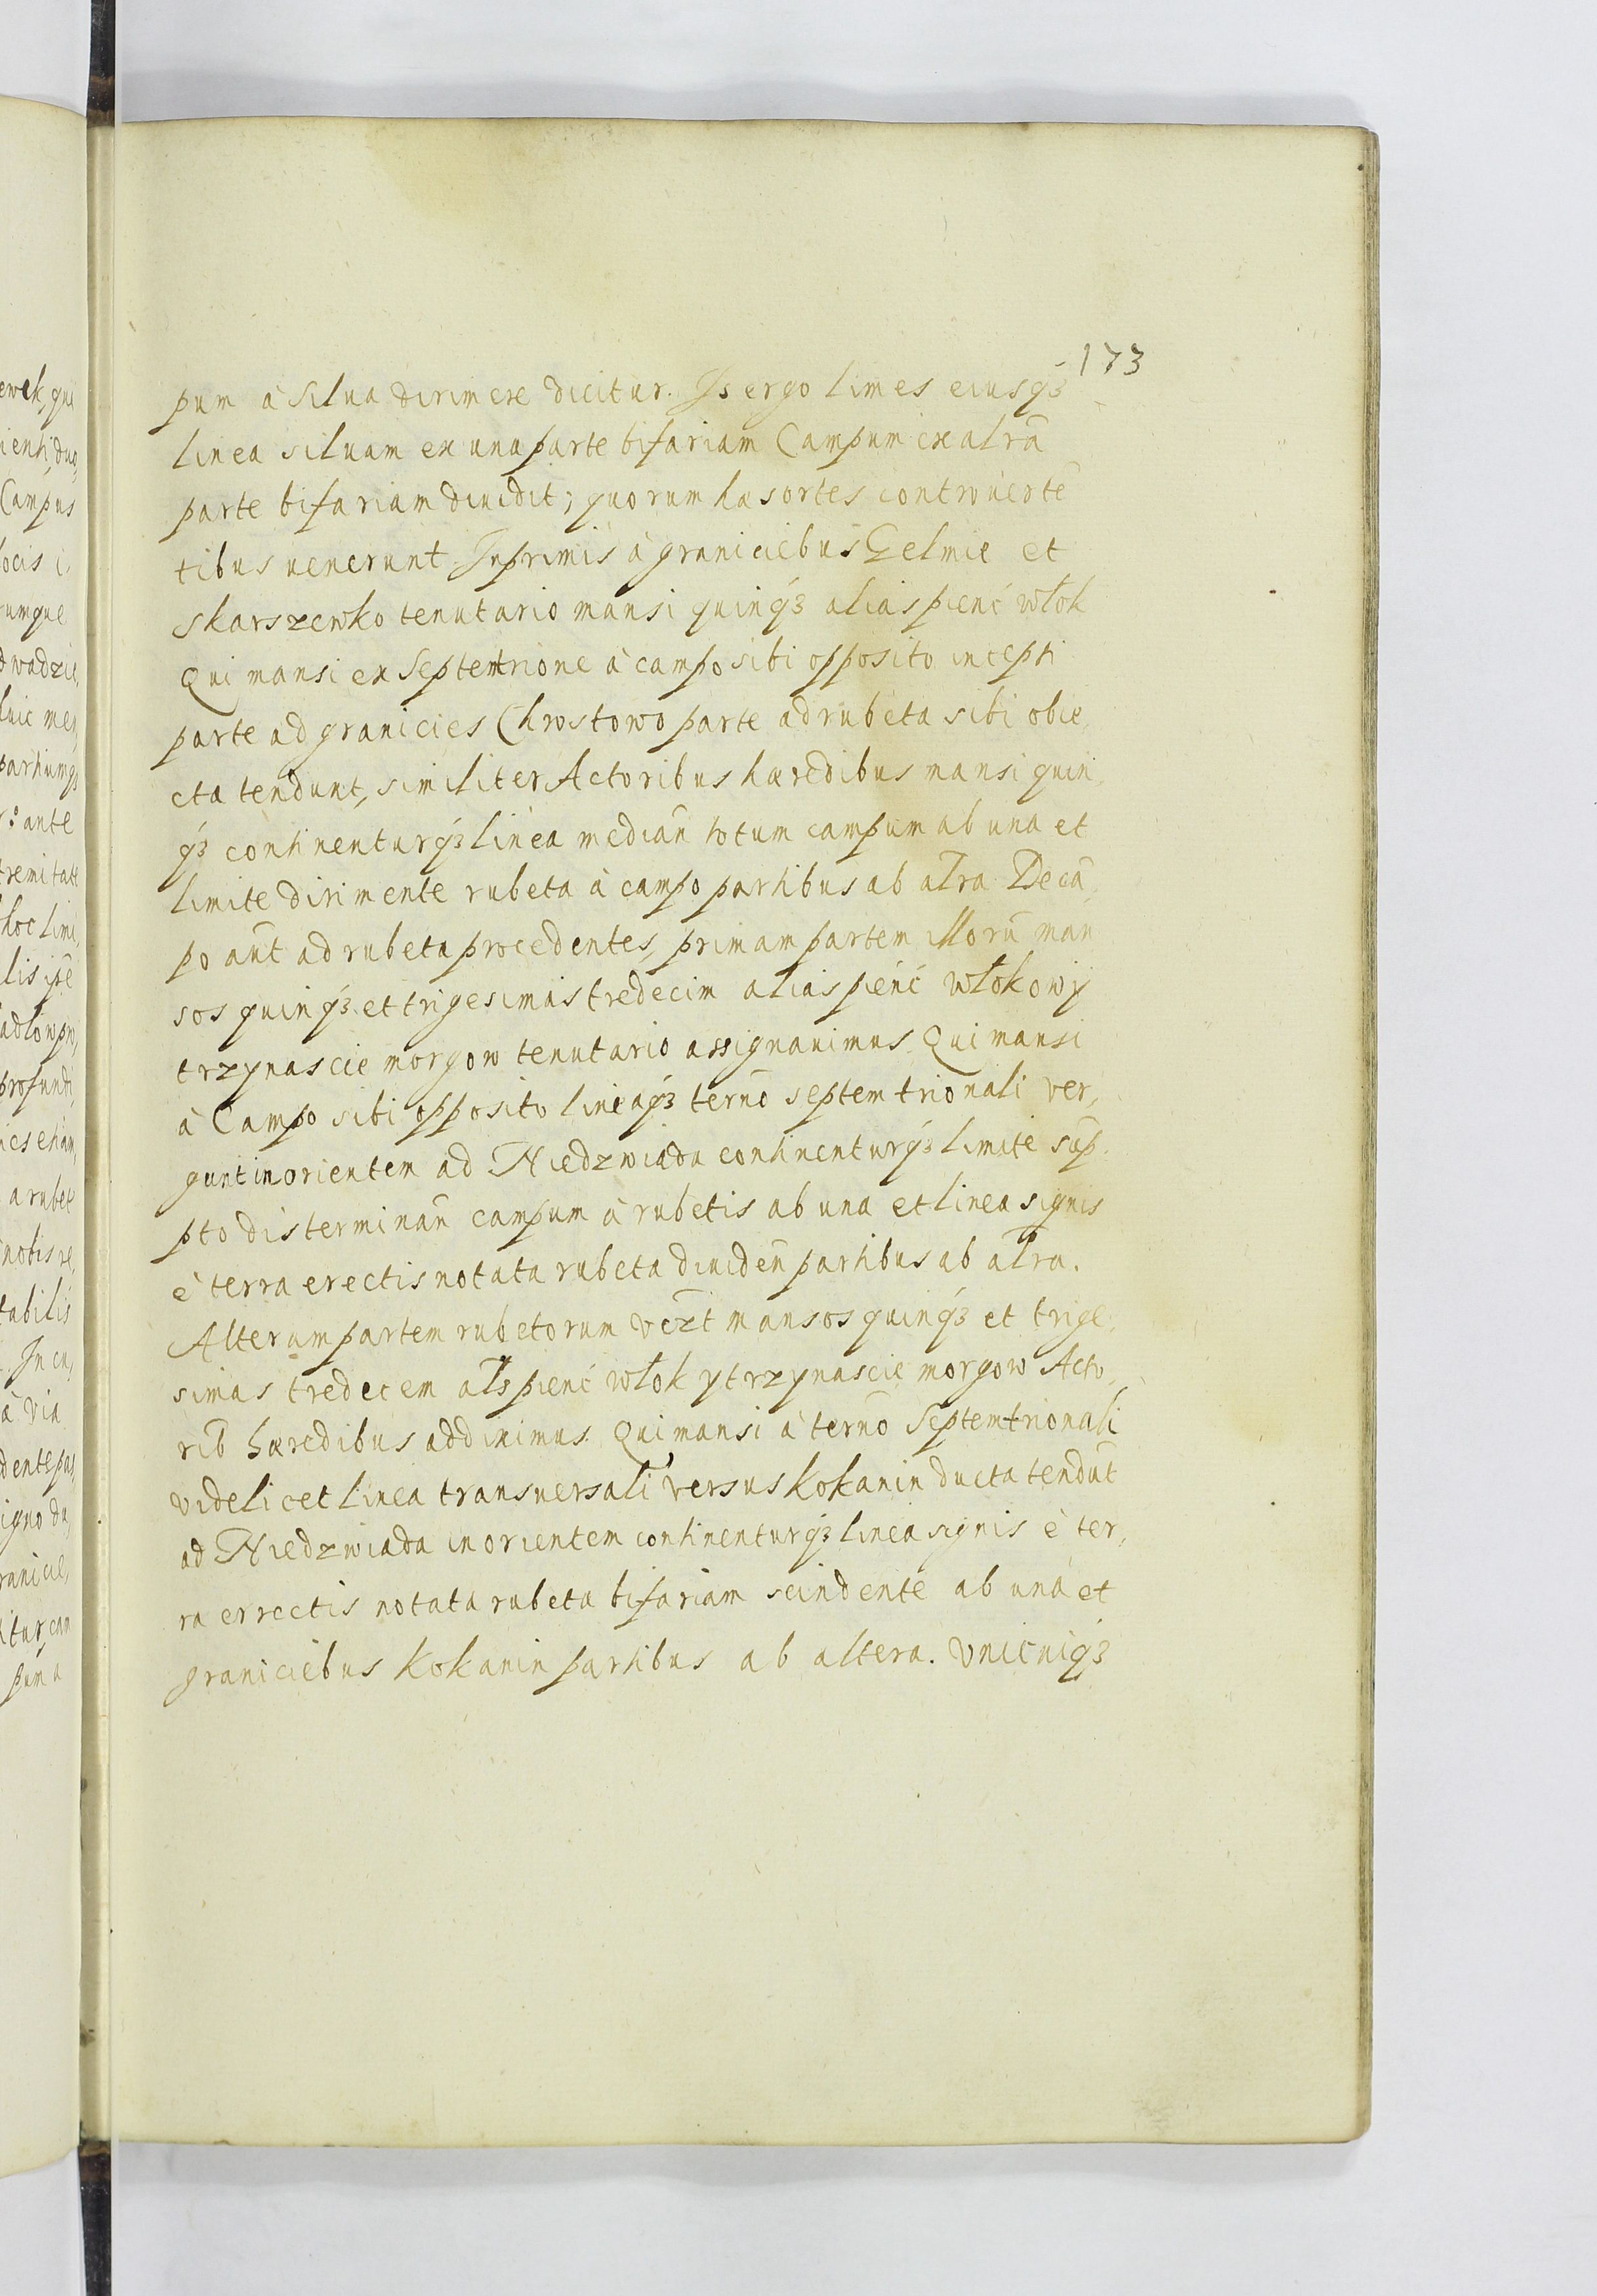 173
pum à Silua dirimere dicitur. Is ergo limes eiusqꝫ
linea siluam ex una parte bifariam Campum ex alrã
parte bifariam diuidit; quorum hæ sortes controuertẽ
tibus uenerunt. Inprimis à graniciebus Gelmie et
Skarszewko tenutario mansi quinqꝫ alias pienć włok
Qui mansi ex Septemtrione à campo sibi opposito incepti
parte ad granicies Chrostowo parte ad rubeta sibi obie,
cta tendunt, similiter Actoribus hæredibus mansi quin,
qꝫ continenturqꝫ linea mediañ totum campum ab una et
limite dirimente rubeta à campo partibus ab alra. De cã,
po aũt ad rubeta procedentes, primam partem illorũ man
sos quinqꝫ et trigesimas tredecim alias pienć włok owy
trzynascie morgow tenutario assignauimus. Qui mansi
à Campo sibi opposito lineaqꝫ termõ septemtrionali ver,
gunt in orientem ad Niedzwiada continenturqꝫ limite sup.
pto disterminañ campum à rubetis ab una et linea signis
è terra erectis notata rubeta diuideñ partibus ab alra.
Alteram partem rubetorum vezt mansos quinqꝫ et trige,
simas tredecem als pienć włok y trzynascie morgow Acto,
rib hæredibus addiximus. Qui mansi à termõ Septemtrionali
videlicet linea transuersali versus Kokanin ducta tendũt
ad Niedzwiada in orientem continenturqꝫ linea signis è ter,
ra errectis notata rubeta bifariam scindente ab una et
graniciebus Kokanin partibus ab altera. Vnicuiqꝫ